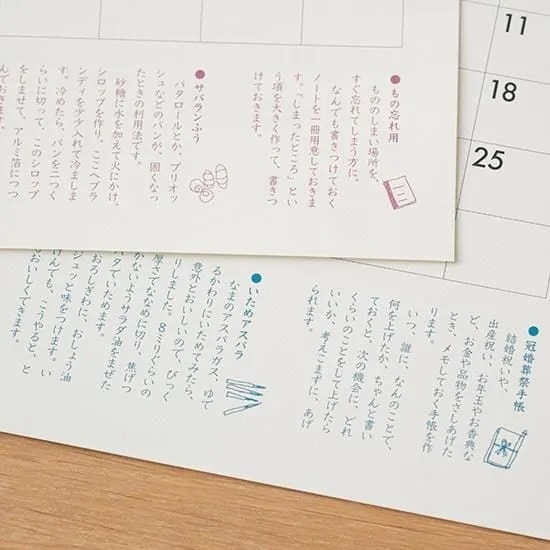 11
18
25
●もの忘れ用
もののしまい場所を、
すぐ忘れてしまう方に。
なんでも書きつけておく
ノートを一冊用意しておきま
す。「しまったところ」とい
う項を大きく作って、書きつ
けておきます。
●サバランふう
バタロールとか、ブリオッ
シュなどのパンが、固くなっ
たときの利用法です。
砂糖に水を加えて火にかけ、
シロップを作り、ここへブラ
ンディを少少入れて冷ましま
す。冷めたら、パンを二つく
らいに切って、このシロップ
をしませて、アルミ箔につつ
んでおきます。
●冠婚葬祭手帳
結婚祝いや、
出産祝い、お年玉やお香典な
ど、お金や品物をさしあげた
とき、メモしておく手帳を作
ります。
いつ、誰に、なんのことで、
何を上げたか、ちゃんと書い
ておくと、次の機会に、どれ
くらいのことをして上げたら
いいか、考えこまずに、あげ
られます。
●いためアスパラ
なまのアスパラガス、ゆで
るかわりにいためてみたら、
意外とおいしいので、びっく
りしました。8ミリぐらいの
厚さでななめに切り、焦げつ
かないようサラダ油をまぜた
バタでいためます。
おろしぎわに、おしょう油
シュッと味をつけます。い
けんでも、こうやると、と
もおいしくできます。